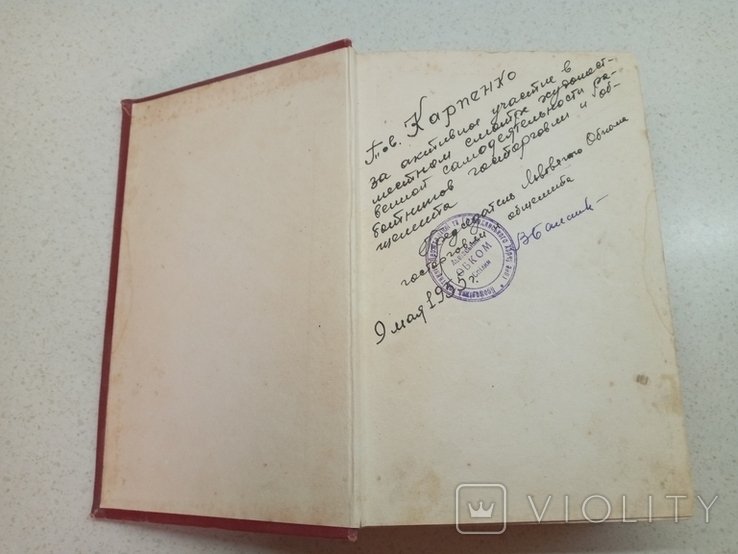 Тов. Карпенко
за активное участие в
местном смотре художест-
венной самодеятельности ра-
ботников госторговли и об-
щепита
Председатель Львовского Обкома
госторговли общепита
ОБКОМ
9 мая 1955 г.
VIOLITY